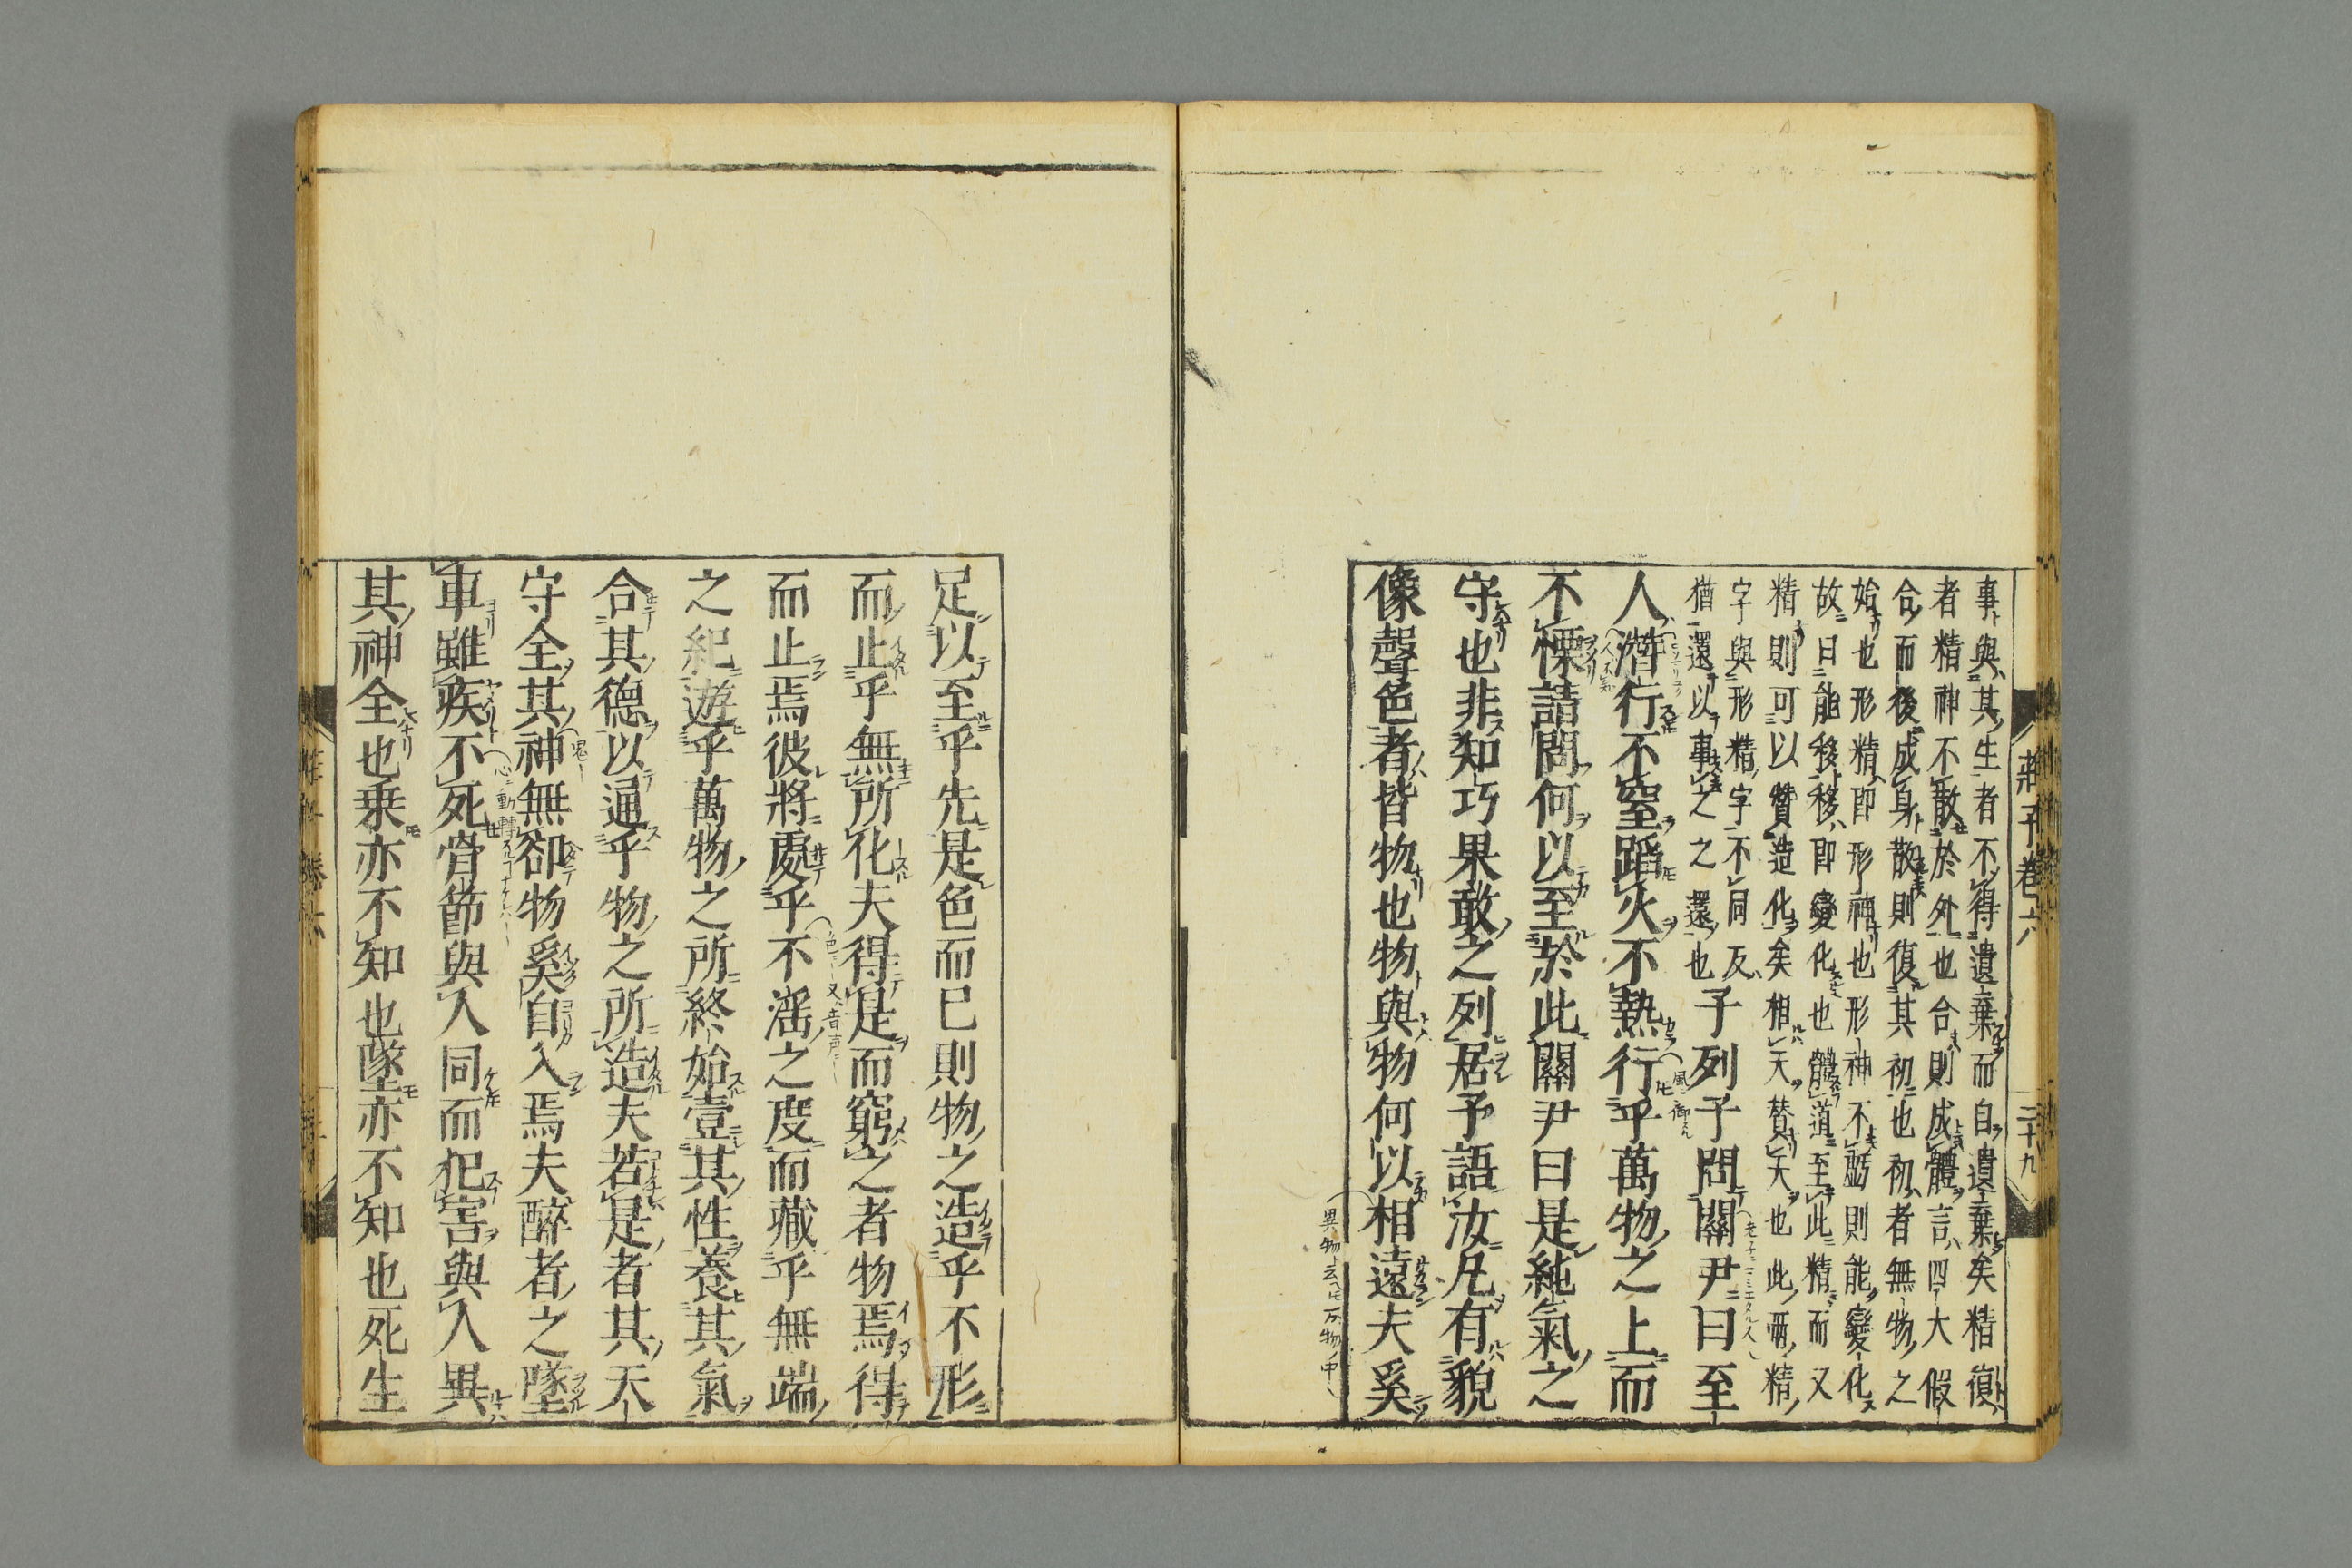 莊子卷六
二十九
事與其生者不得遺棄而自遺棄矣精復
者精神不散於外也合則成體言四大假
合而後成身散則復其初也初者無物之
始也形精即形神也形神不虧則能變化
故曰能移移即變化也體道至此精而又
精則可以贊造化矣相天贊天也此兩精
字與形精字不同反
猶還以事之之還也
子列子問關尹曰至
人潛行不窒蹈火不熱行乎萬物之上而
不慄請問何以至於此關尹曰是純氣之
守也非知巧果敢之列居予語汝凡有貌
像聲色者皆物也物與物何以相遠夫奚
足以至乎先是色而已則物之造乎不形
而止乎無所化夫得是而窮之者物焉得
而止焉彼將處乎不滛之度而藏乎無端
之紀遊乎萬物之所終始壹其性養其氣
合其德以通乎物之所造夫若是者其天
守全其神無郤物奚自入焉夫醉者之墜
車雖疾不死骨節與人同而犯害與人異
其神全也乗亦不知也墜亦不知也死生